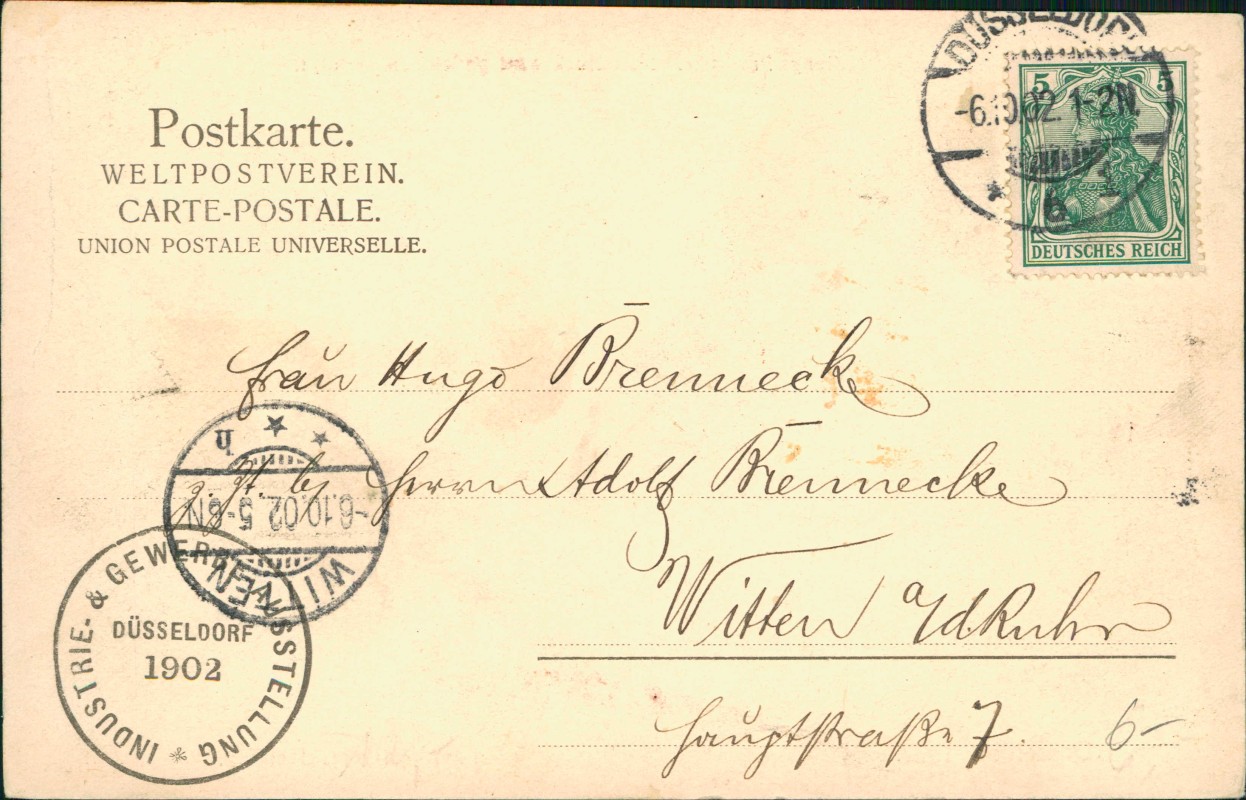 Postkarte.
WELTPOSTVEREIN.
CARTE-POSTALE.
UNION POSTALE UNIVERSELLE.
DÜSSELDORF
-6.10.02. 1-2N.
* b 1
5 5
DEUTSCHES REICH
Frau Hugo Brennecke
z. Zt. bei Herrn Adolf Brennecke
Witten a/d Ruhr
Hauptstraße 7.
6-
WITTEN
-6.10.02. 5-6N
* * h
INDUSTRIE- & GEWERBE-AUSSTELLUNG *
DÜSSELDORF
1902